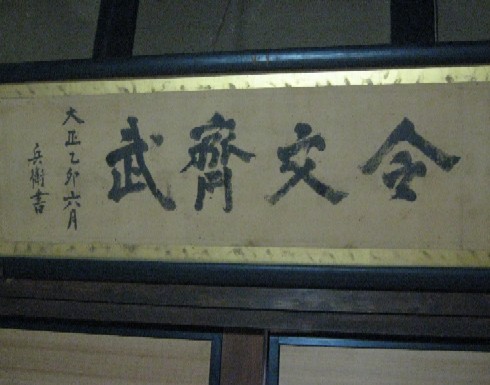 令文齊武
大正乙卯六月
兵衛書